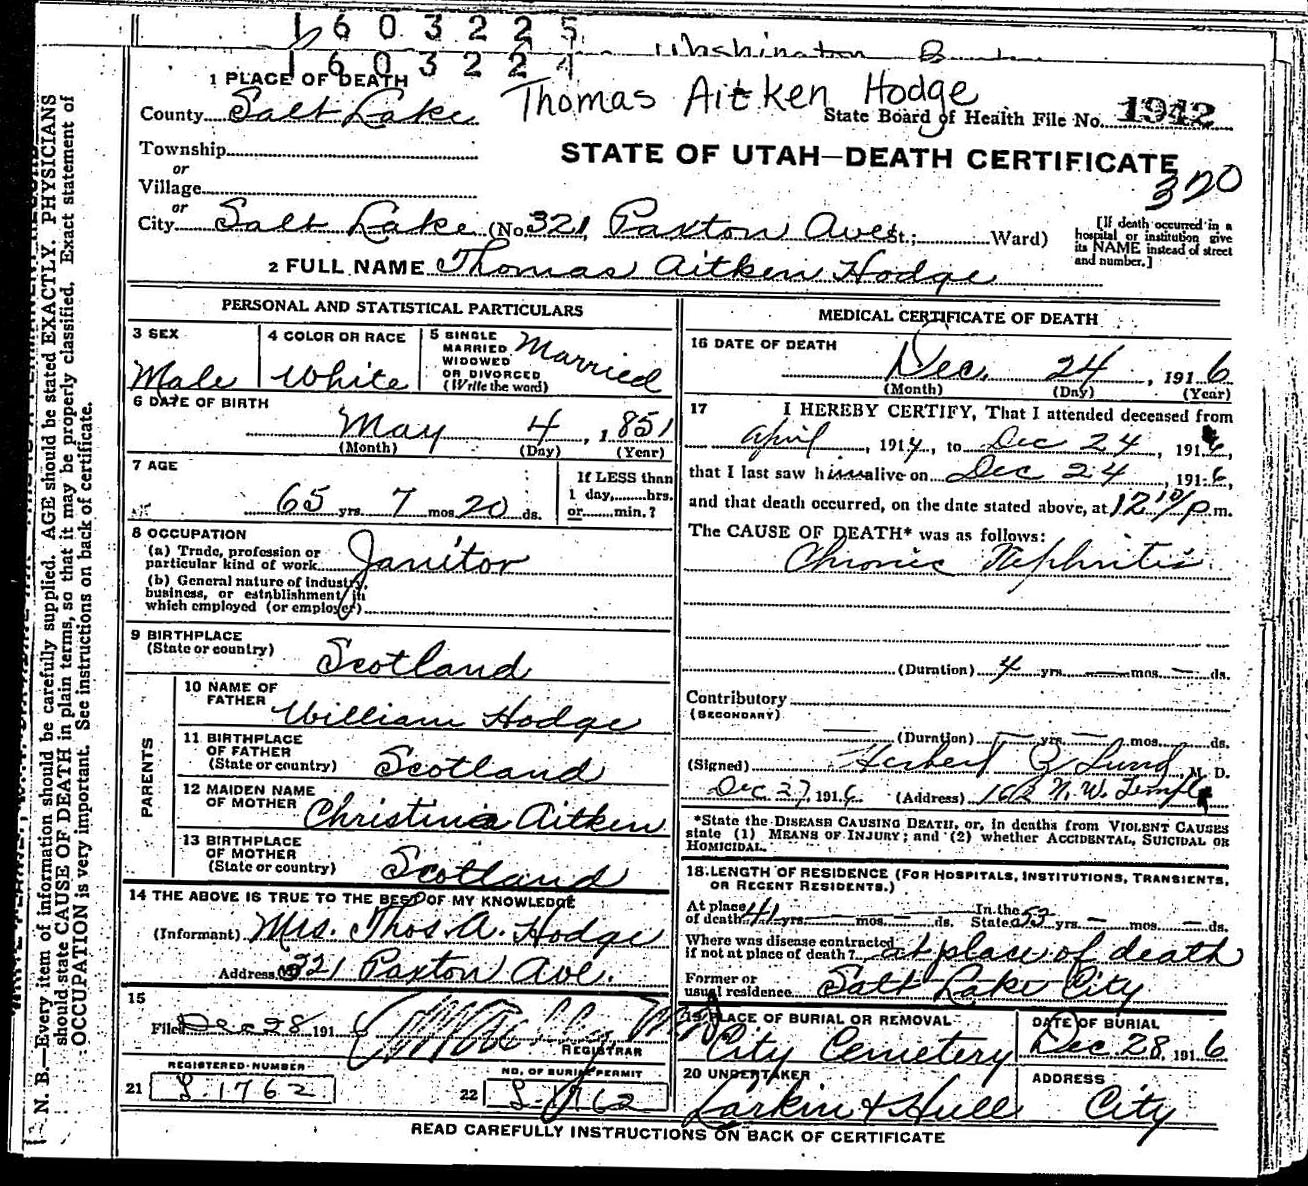 1 6 0 3 2 2 5
Washington
1 6 0 3 2 2 4
1 PLACE OF DEATH
Thomas Aitken Hodge
County Salt Lake
State Board of Health File No. 1942
Township
STATE OF UTAH—DEATH CERTIFICATE
or
Village
320
or
City Salt Lake (No. 321, Paxton Ave St.; Ward)
[If death occurred in a
hospital or institution give
its NAME instead of street
and number.]
2 FULL NAME Thomas Aitken Hodge
PERSONAL AND STATISTICAL PARTICULARS
3 SEX
Male
4 COLOR OR RACE
White
5 SINGLE
MARRIED
WIDOWED
OR DIVORCED
(Write the word)
Married
6 DATE OF BIRTH
May 4, 1851
(Month) (Day) (Year)
7 AGE
65 yrs. 7 mos. 20 ds.
If LESS than
1 day, hrs.
or min.?
8 OCCUPATION
(a) Trade, profession or
particular kind of work Janitor
(b) General nature of industry,
business, or establishment in
which employed (or employer)
9 BIRTHPLACE
(State or country) Scotland
PARENTS
10 NAME OF
FATHER William Hodge
11 BIRTHPLACE
OF FATHER
(State or country) Scotland
12 MAIDEN NAME
OF MOTHER Christina Aitken
13 BIRTHPLACE
OF MOTHER
(State or country) Scotland
14 THE ABOVE IS TRUE TO THE BEST OF MY KNOWLEDGE
(Informant) Mrs. Thos. A. Hodge
Address 321 Paxton Ave.
15
Filed Dec 28 1916
REGISTRAR
REGISTERED NUMBER
21 L. 1762
NO. OF BURIAL PERMIT
22 L. 1762
MEDICAL CERTIFICATE OF DEATH
16 DATE OF DEATH
Dec. 24, 1916
(Month) (Day) (Year)
17 I HEREBY CERTIFY, That I attended deceased from
April, 1914, to Dec 24, 1916,
that I last saw him alive on Dec 24, 1916,
and that death occurred, on the date stated above, at 12 10/P m.
The CAUSE OF DEATH* was as follows:
Chronic Nephritis
(Duration) 4 yrs. — mos. — ds.
Contributory
(SECONDARY)
(Duration) — yrs. — mos. ds.
(Signed) Herbert Z Lund M. D.
Dec 27, 1916 (Address) N. W. Temple
*State the DISEASE CAUSING DEATH, or, in deaths from VIOLENT CAUSES
state (1) MEANS OF INJURY; and (2) whether ACCIDENTAL, SUICIDAL OR
HOMICIDAL.
18 LENGTH OF RESIDENCE (FOR HOSPITALS, INSTITUTIONS, TRANSIENTS,
OR RECENT RESIDENTS.)
At place
of death 41 yrs. — mos. — ds. In the
State 53 yrs. — mos. — ds.
Where was disease contracted
if not at place of death? at place of death
Former or
usual residence Salt Lake City
19 PLACE OF BURIAL OR REMOVAL
City Cemetery
DATE OF BURIAL
Dec. 28, 1916
20 UNDERTAKER
Larkin & Hull
ADDRESS
City
READ CAREFULLY INSTRUCTIONS ON BACK OF CERTIFICATE
N. B.—Every item of information should be carefully supplied. AGE should be stated EXACTLY. PHYSICIANS
should state CAUSE OF DEATH in plain terms, so that it may be properly classified. Exact statement of
OCCUPATION is very important. See instructions on back of certificate.